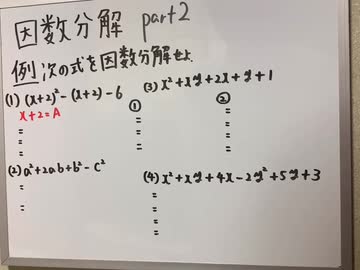 因数分解 part2
例 次の式を因数分解せよ.
(1) (x+2)²-(x+2)-6
x+2=A
=
=
=
(2) a²+2ab+b²-c²
=
=
(3) x²+xy+2x+y+1
① ②
= =
= =
= =
= =
(4) x²+xy+4x-2y²+5y+3
=
=
=
=